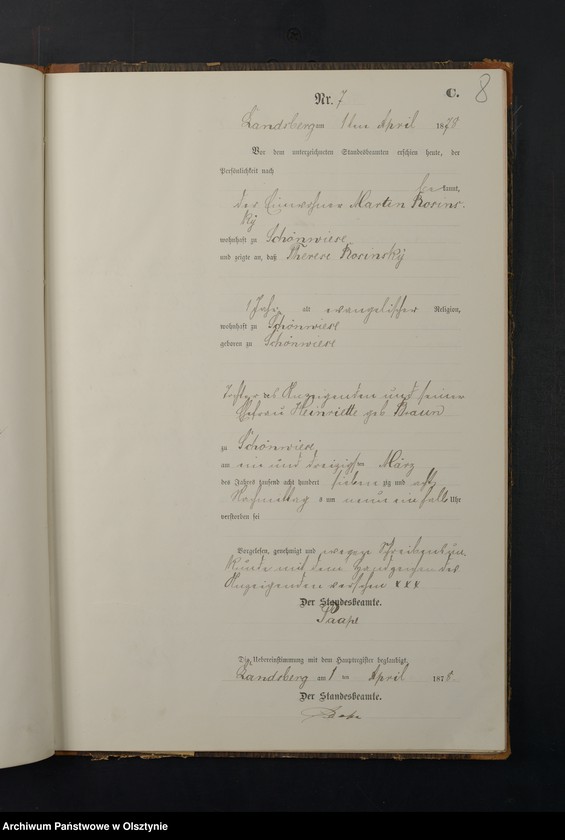 Nr. 7
C.
8
Landsberg am 1 ten April 1878
Vor dem unterzeichneten Standesbeamten erschien heute, der
Persönlichkeit nach
be kannt,
der Einwohner Martin Rosins-
ky
wohnhaft zu Schönwiese
und zeigte an, daß Therese Rosinsky
1 Jahr alt evangelischer Religion,
wohnhaft zu Schönwiese
geboren zu Schönwiese
Tochter des Anzeigenden und seiner
Ehefrau Heinriette geb Braun
zu Schönwiese
am ein und dreizigsten März
des Jahres tausend acht hundert sieben zig und acht
Nachmittag s um neun einhalb Uhr
verstorben sei
Vorgelesen, genehmigt und wegen Schreibensun
kunde mit dem Handzeichen des
Anzeigenden versehen x x x
Der Standesbeamte.
Die Uebereinstimmung mit dem Hauptregister beglaubigt.
Landsberg am 1 ten April 1878.
Der Standesbeamte.
Archiwum Państwowe w Olsztynie